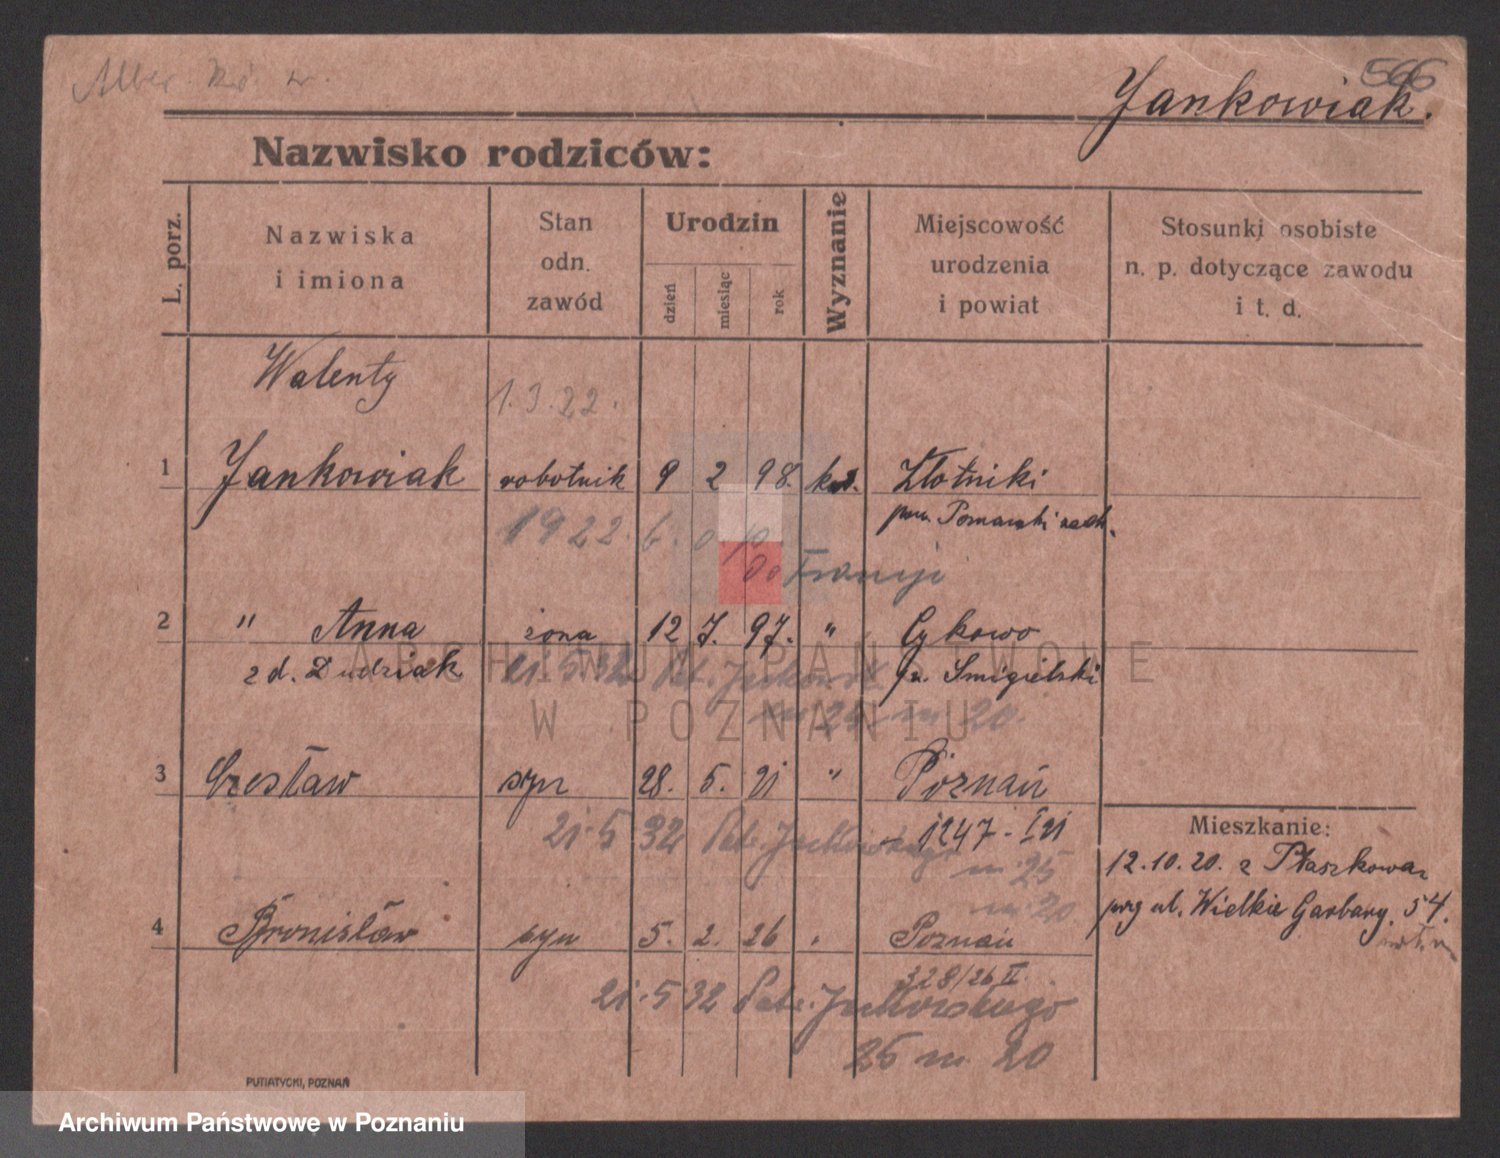 566
Jankowiak.
Nazwisko rodziców:
L. porz.
Nazwiska
i imiona
Stan
odn.
zawód
Urodzin
dzień
miesiąc
rok
Wyznanie
Miejscowość
urodzenia
i powiat
Stosunki osobiste
n. p. dotyczące zawodu
i t. d.
Walenty
1.3.22.
1 Jankowiak robotnik 9 2 98. kat. Złotniki
pow. Poznański zach.
1922 6.
do Francji
2 " Anna żona 12 7. 97. " Cykowo
z d. Dudziak p. Śmigielski
21.5.32
m 20.
3 Czesław syn 28. 5. 21 " Poznań
1247 - I 21
21.5 32
m 25
m 20
Mieszkanie:
12.10.20. z Ptaszkowa
przy ul. Wielkie Garbary. 54.
4 Bronisław syn 5. 2. 26 " Poznań
328/26 II.
21.5 32 Jackowskiego
25 m 20
PUTIATYCKI, POZNAŃ
ARCHIWUM PAŃSTWOWE
W POZNANIU
Archiwum Państwowe w Poznaniu